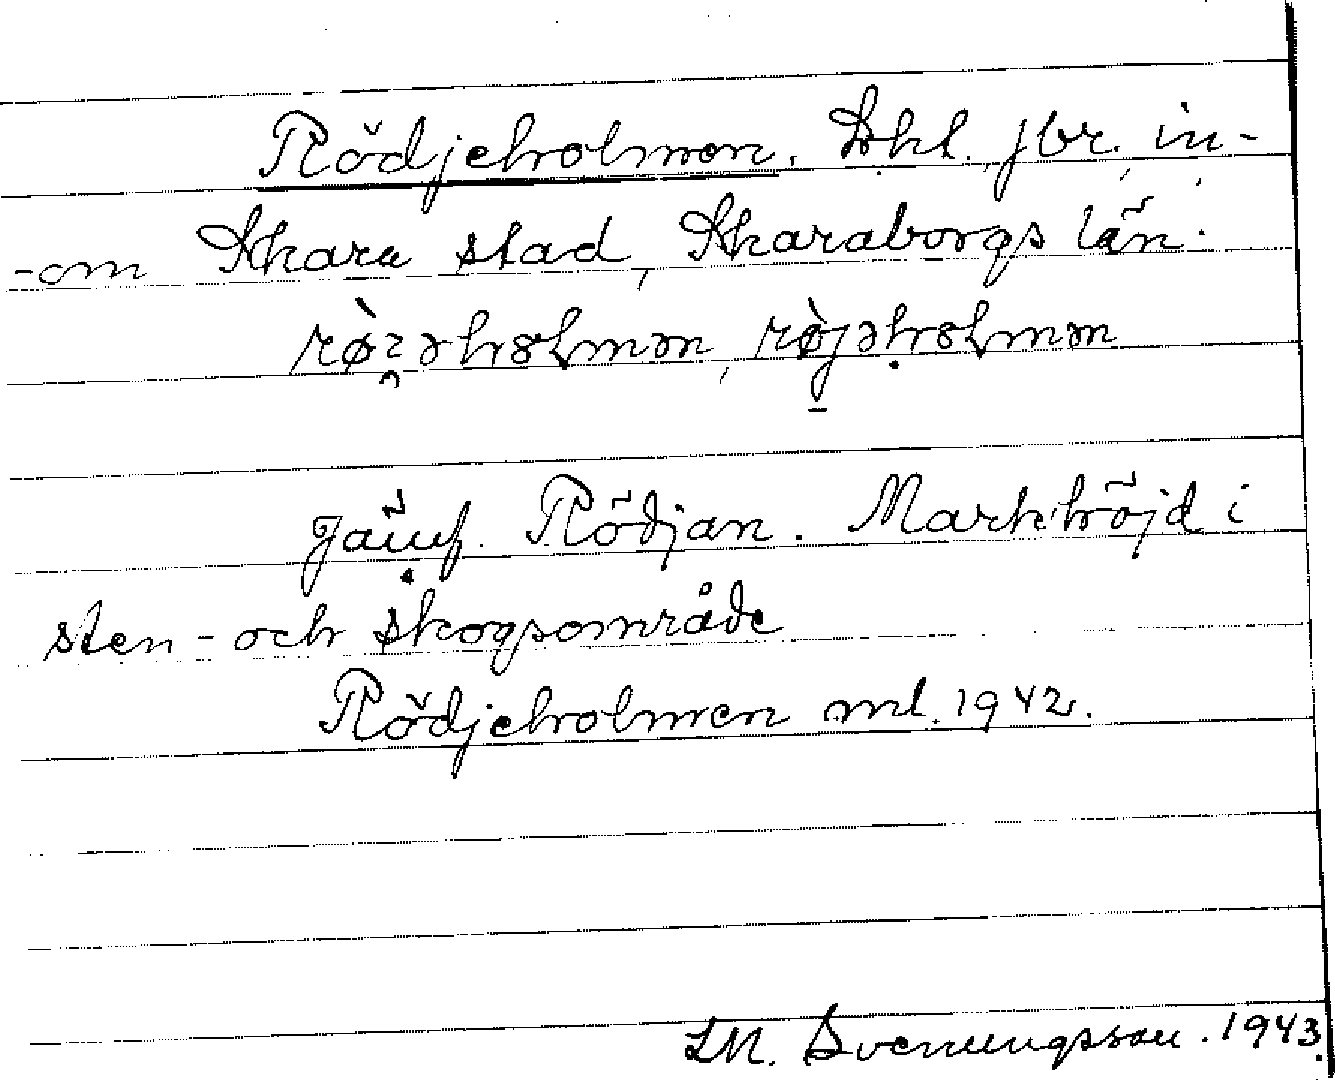 Rödjeholmen. Skl. jbr. in-
-om Skara stad, Skaraborgs län.
jämf. Rödjan. Markhöjd i
sten- och skogsområde
Rödjeholmen ml. 1942.
LM. Svenungsson. 1943.